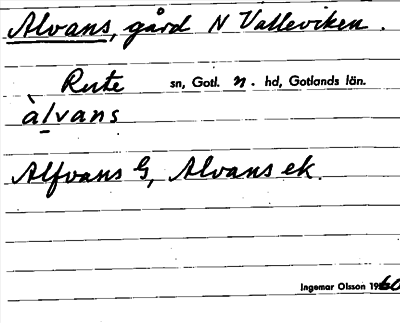 Alvans, gård N Valleviken.
Rute sn, Gotl. n. hd, Gotlands län.
àlvans
Alfvans G, Alvans ek.
Ingemar Olsson 1960